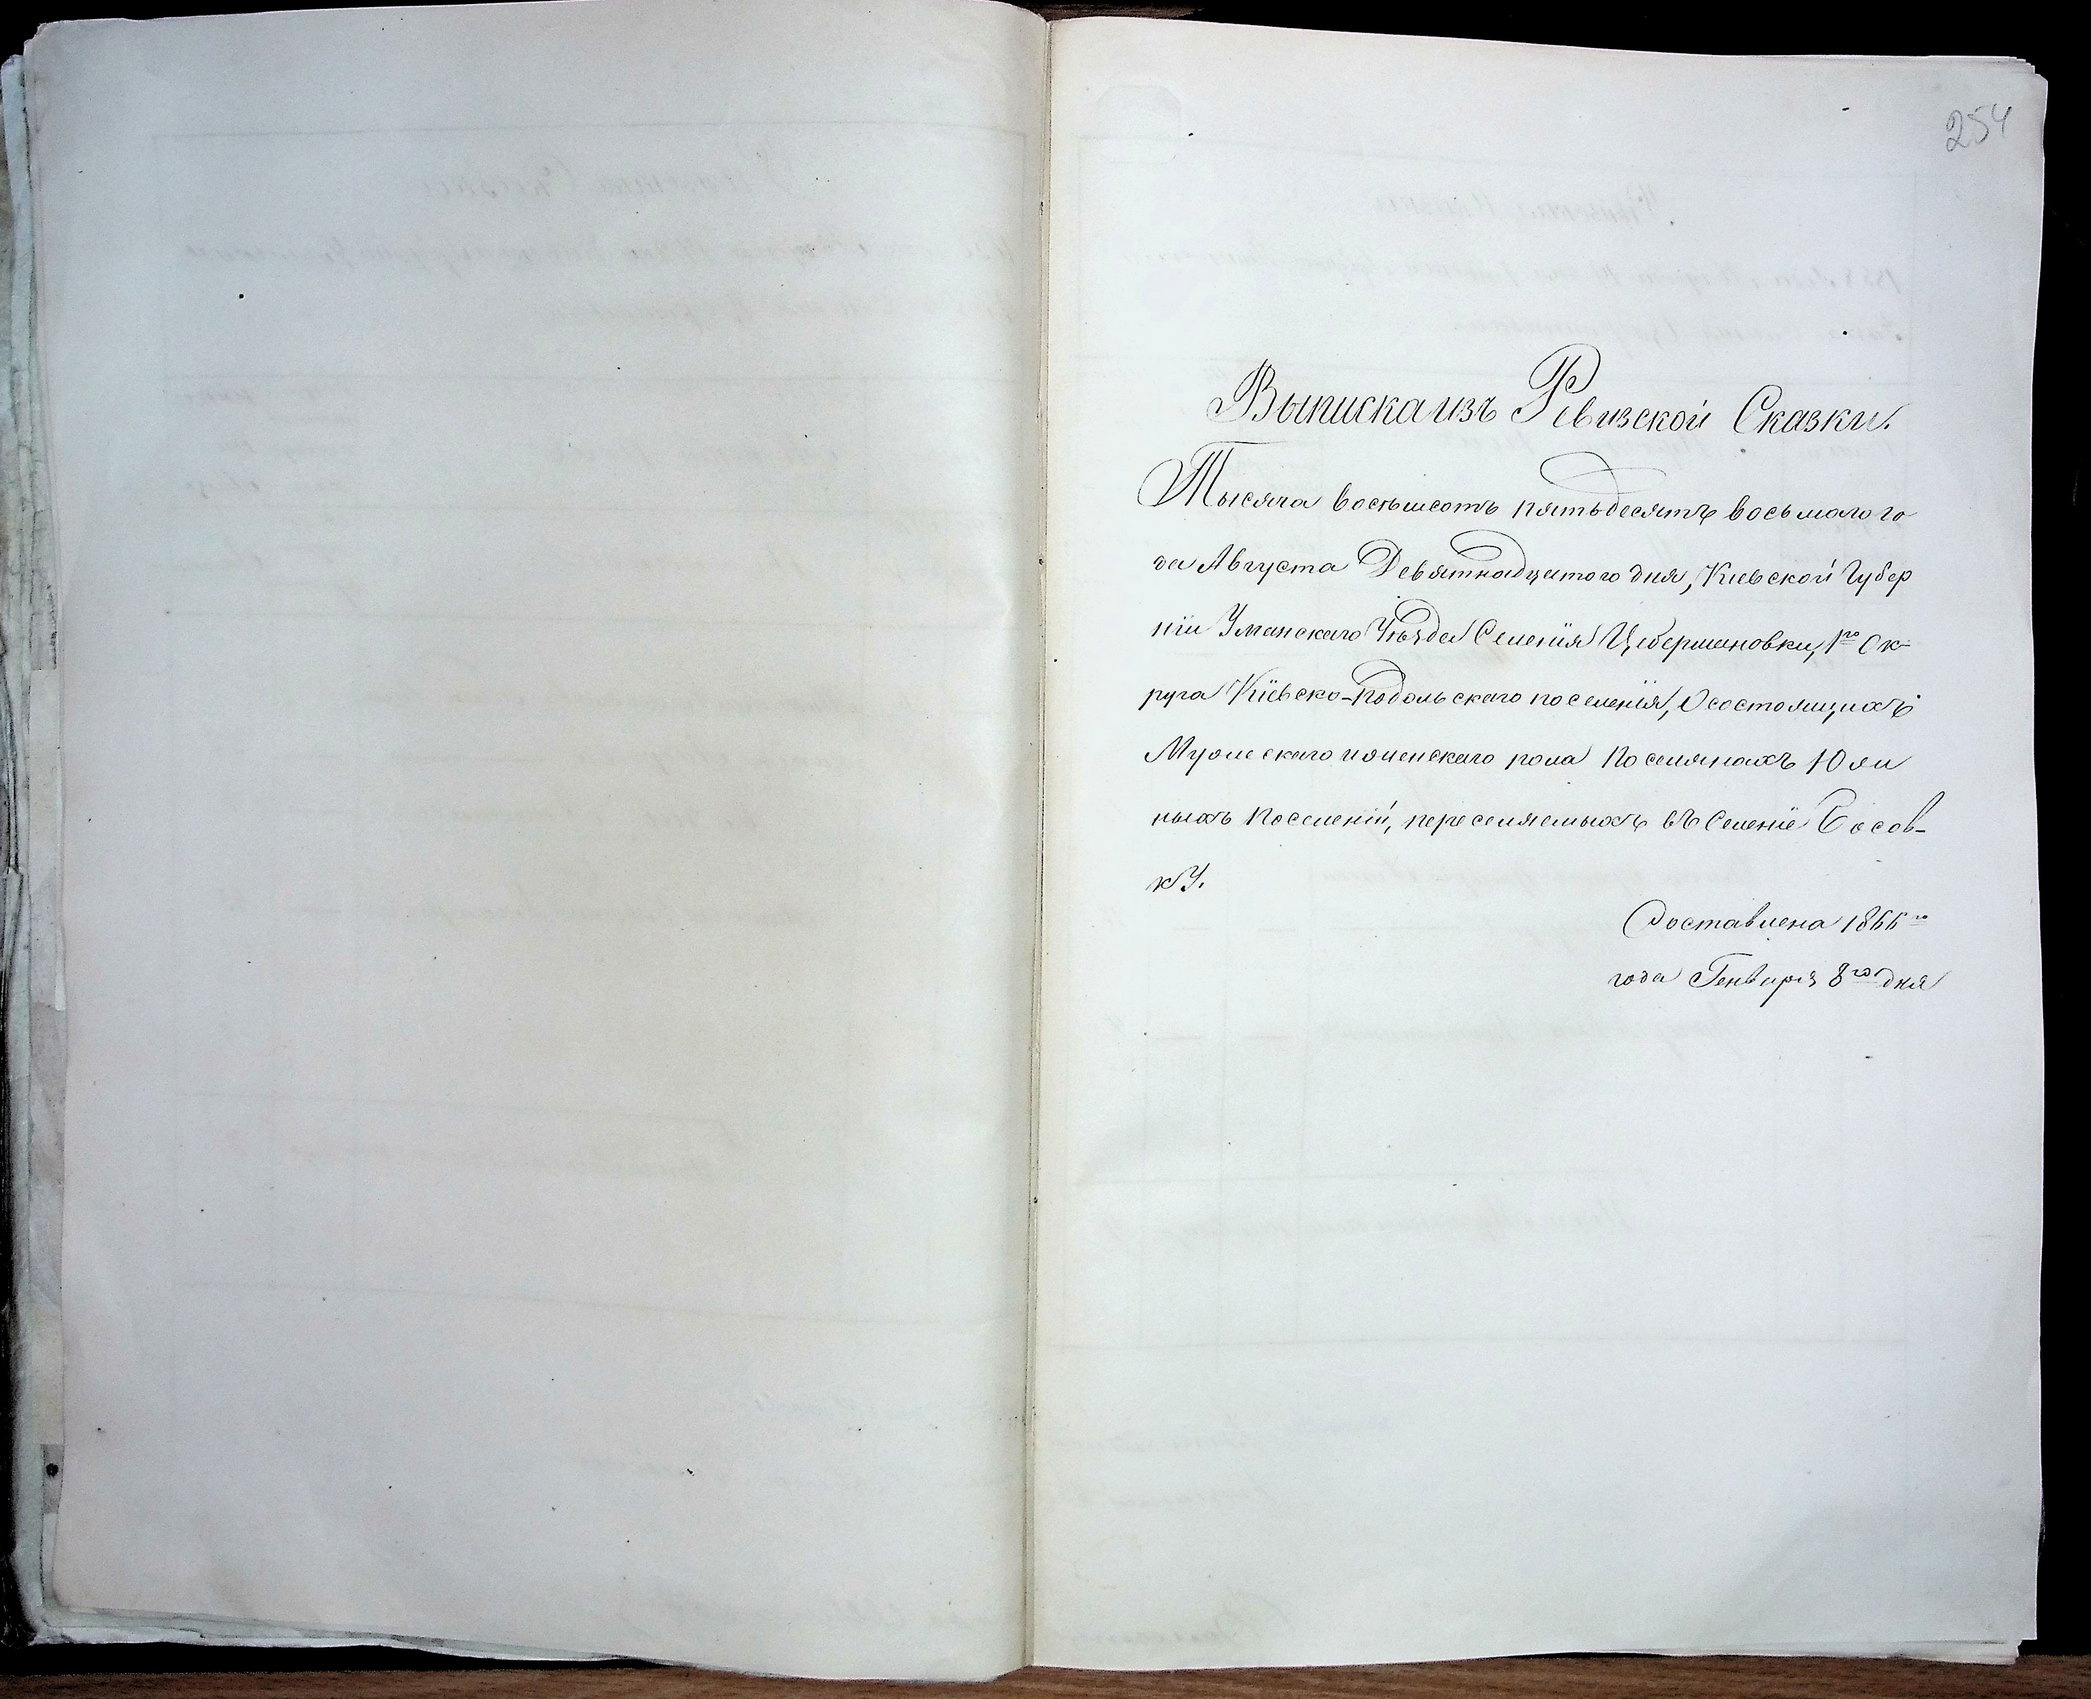 254
Выписка изъ Ревизской Сказки.
Тысяча восѣмсотъ пятьдесятъ восьмаго го
да Августа Девятнадцатого дня, Киевской Губер
ніи Уманскаго Уѣзда Селенія Цебермановки, 1го Ок-
руга Кіевско-Подольскаго поселенія, О состоящихъ
Мужескаго и женскаго пола Поселянахъ Южн
ныхъ Поселеній, переселяемыхъ въ Селеніе Босов-
кУ.
Составлена 1866го
года Генваря 8го дня